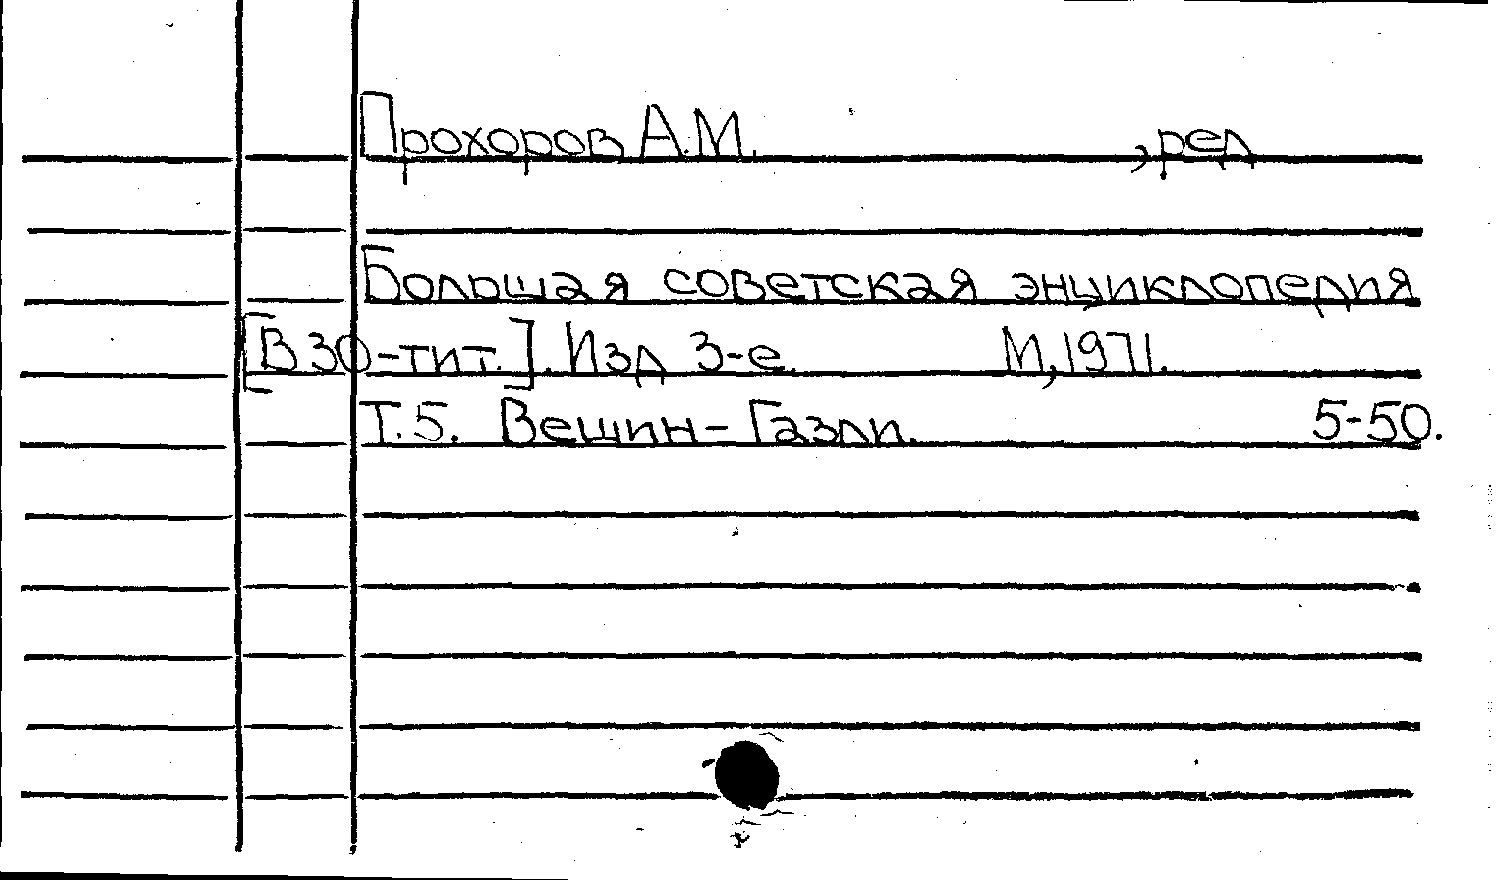 Прохоров А.М. , ред
Большая советская энциклопедия
[В 30-тит.]. Изд 3-е. М, 1971.
Т.5. Вешин - Газли. 5-50.